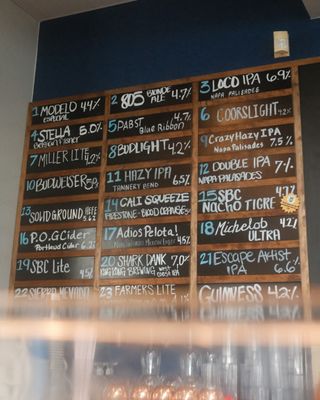 1 MODELO 4.4%
ESPECIAL
2 805 BLONDE ALE 4.7%
3 LOCO IPA 6.9%
NAPA PALISADES
4 STELLA 5.0%
Belgian Pilsner
5 PABST 4.7%
Blue Ribbon
6 COORSLIGHT 4.2%
7 MILLER LITE 4.2%
8 BUDLIGHT 4.2%
9 CrazyHazy IPA
Napa Palisades 7.5%
10 BUDWEISER 5%
11 HAZY IPA
TANNERY BEND 6.5%
12 DOUBLE IPA 7%
NAPA PALISADES
13 SOLID GROUND HEFE 5.2
14 CALI SQUEEZE
FIRESTONE - BLOOD ORANGE 5%
15 SBC 4.7%
NACHO TIGRE
16 P.O.G Cider
Portland Cider 6.2
17 Adios Pelota!
4.5%
18 Michelob 4.2%
ULTRA
19 SBC Lite 4.5%
20 SHARK DANK 7.0%
King Kong BREWING WEST COAST IPA
21 Escape Artist
IPA 6.6%
22 SIERRA NEVADA
23 FARMERS LITE
GUINNESS 4.2%